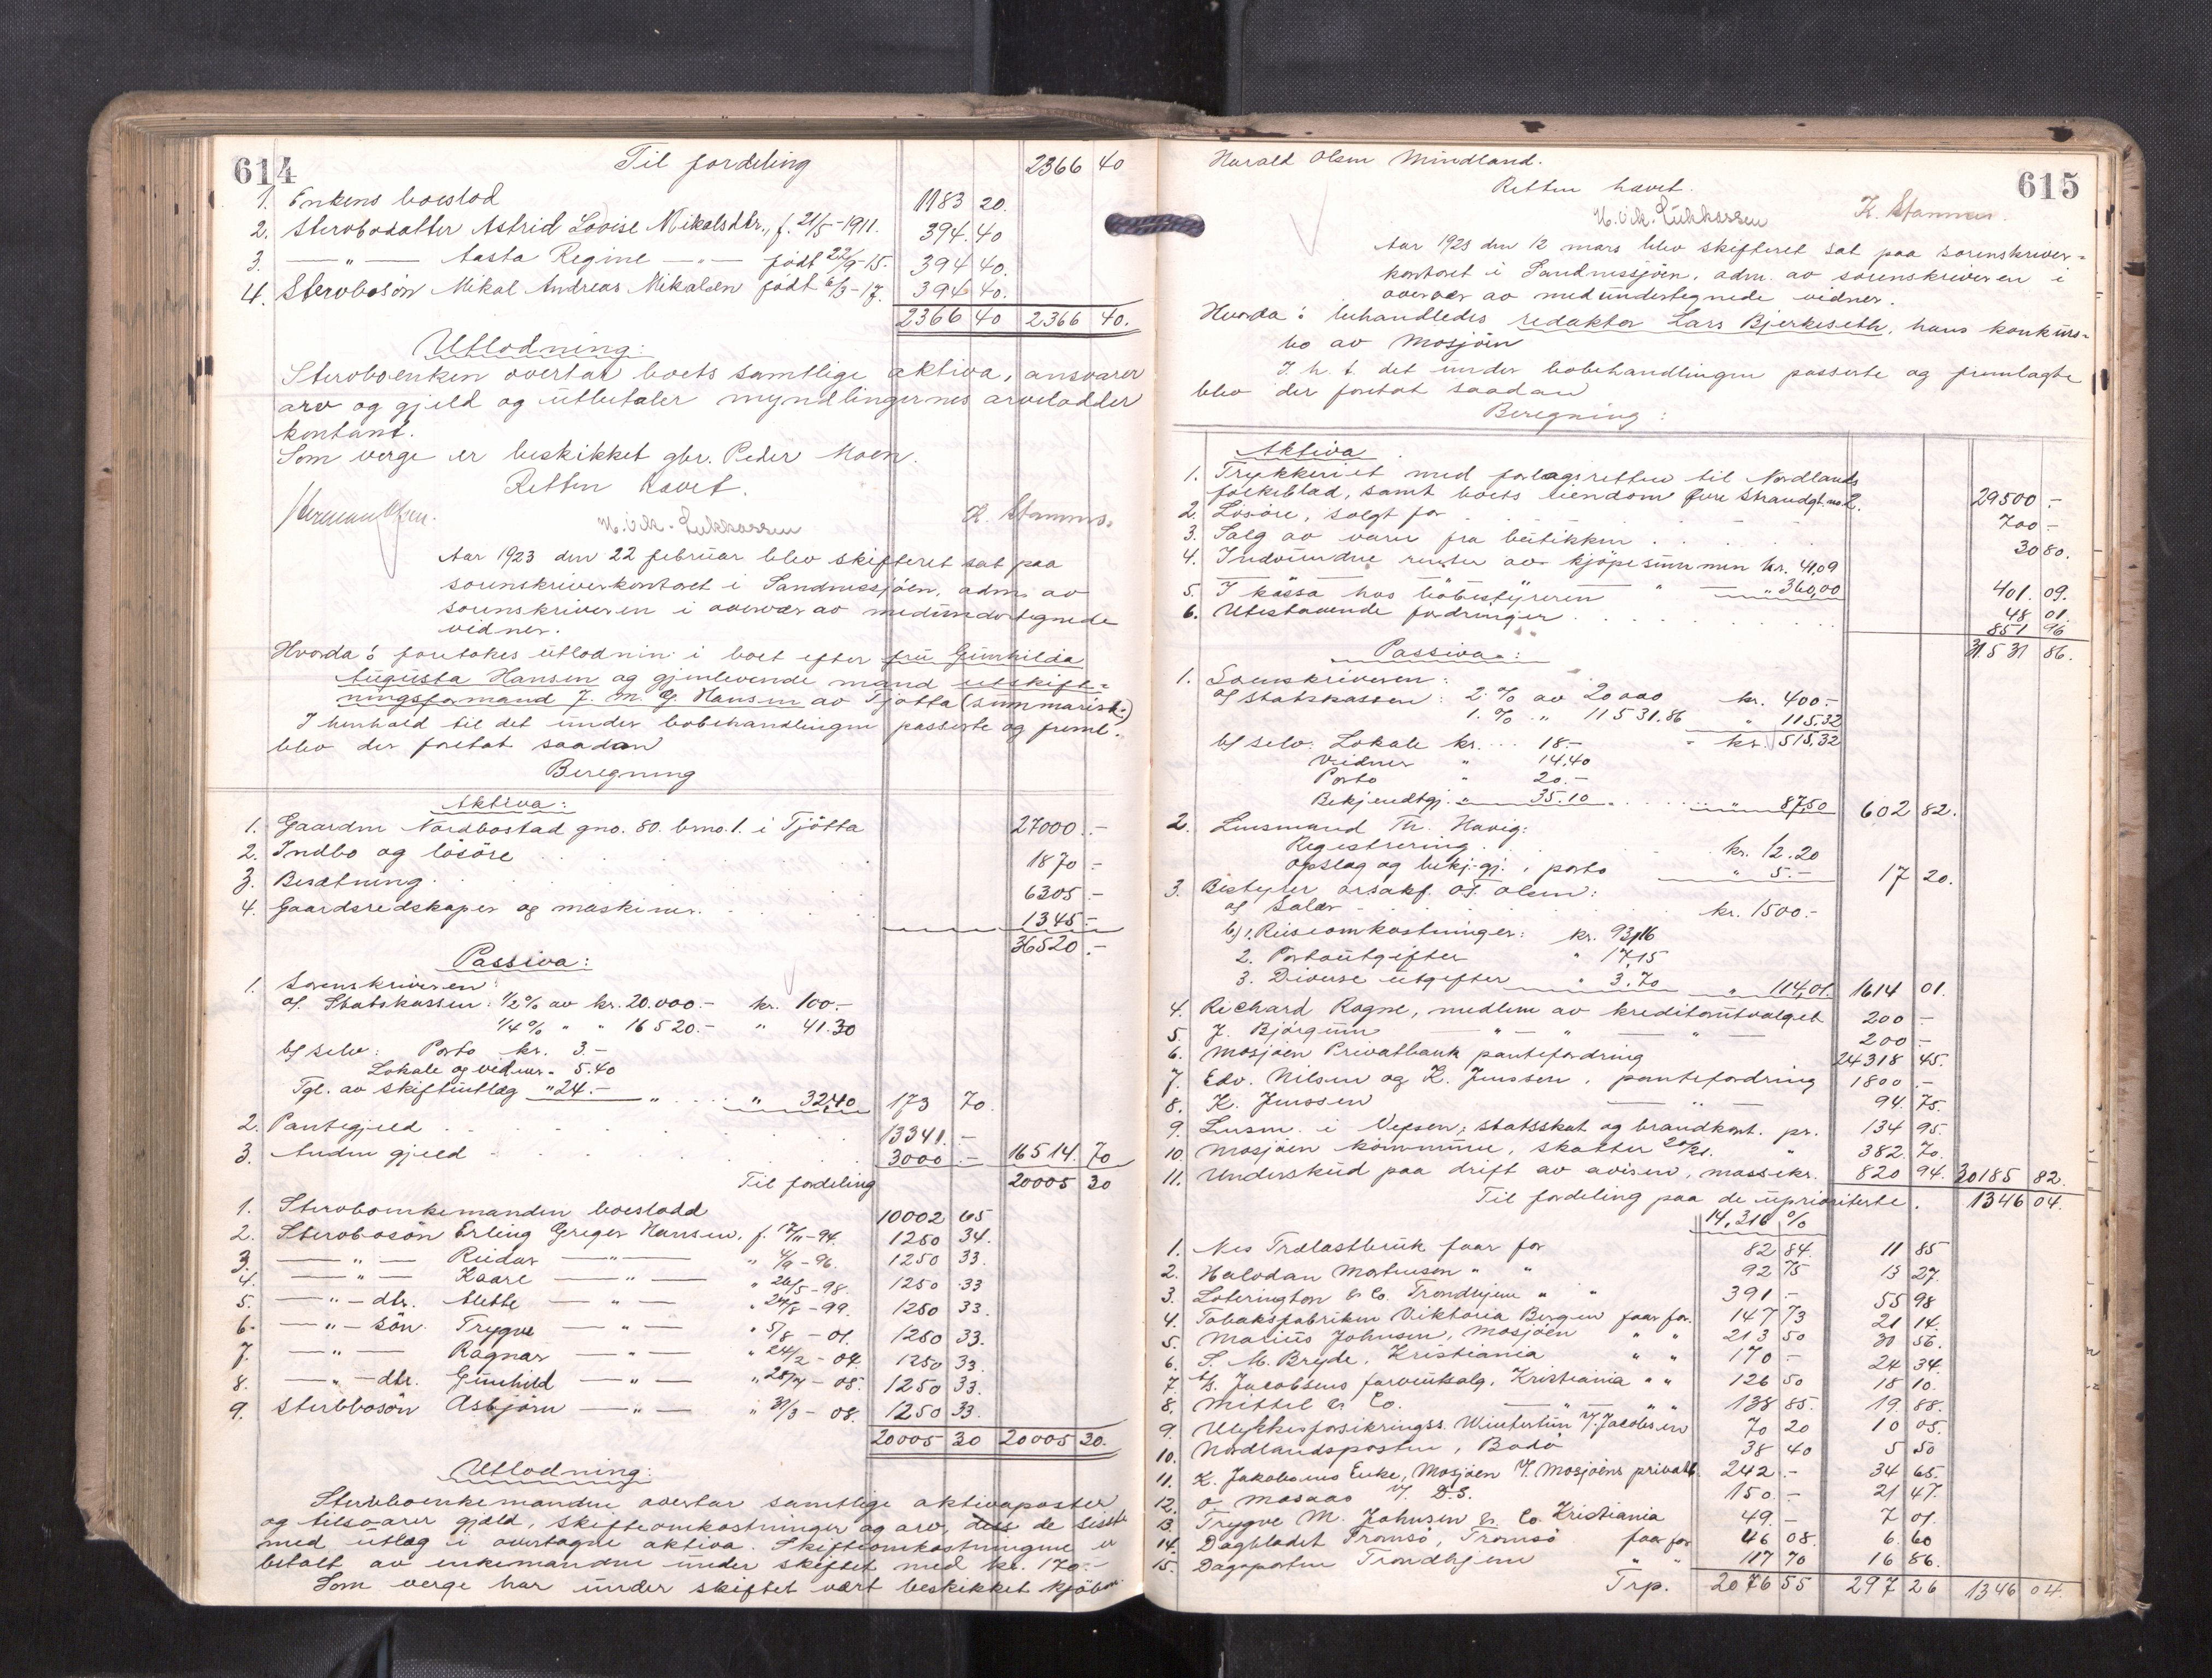 614
Til fordeling 2366 40
1. Enkens boeslod 1183 20.
2. Sterbodatter Astrid Lovise Mikalsdtr., f. 21/5-1911. 394.40
3. — " — Aasta Regine — " — født 22/9-15. 394 40.
4. Sterbosön Mikal Andreas Mikalsen født 6/3-17. 394 40.
2366 40 2366 40.
Utlodning:
Sterboenken overtar boets samtlige aktiva, ansvarer
arv og gjeld og utbetaler myndlingernes arvelodder
kontant.
Som verge er beskikket gbr. Peder Moen.
Retten hævet.
Herman Olsen. K. Stamnes.
Aar 1923 den 22 februar blev skifteret sat paa
sorenskriverkontoret i Sandnessjøen, adm. av
sorenskriveren i overvær av medundertegnede
vidner.
Hvorda: foretokes utlodnin i boet efter fru Gunhilda
Augusta Hansen og gjenlevende mand utskift-
ningsformand J. M. G. Hansen av Tjøtta (summarisk.)
I henhold til det under bobehandlingen passerte og freml.
blev der foretat saadan
Beregning
Aktiva:
1. Gaarden Nordbostad gno. 80. bno. 1. i Tjøtta 27000.-
2. Indbo og lösöre 1870.-
3. Besætning 6305.-
4. Gaardsredskaper og maskiner. 1345.-
36520.-
Passiva:
1. Sorenskriveren:
a/. Statskassen: 1/2% av kr. 20.000.- kr. 100.-
1/4% " " 16520.- " 41.30
b/ selv: Porto kr. 3.-
Lokale og vidner " 5.40
Tgl. av skifteutlæg " 24.- " 32,40 173 70.
2. Pantegjeld 13341.-
3. Anden gjeld 3000.- 16514.70
Til fordeling 20005 30
1. Sterboenkemanden boeslodd 10002 65
2. Sterbosön Erling Greger Hansen, f. 17/11-94. 1250 34.
3. — " — Reidar — " — " 4/9-96. 1250 33.
4. — " — Kaare — " — " 26/5-98. 1250 33
5. — " — dtr. Mette — " — " 24/8-99. 1250 33.
6. — " — sön Trygve — " — " 5/8-01. 1250 33.
7. — " — Ragnar — " — " 24/2-04. 1250 33.
8. — " — dtr. Gunhild — " — " 08. 1250 33.
9. Sterbosön Asbjørn — " — " 31/3-08. 1250 33.
20005 30 20005 30.
Utlodning:
Sterboenkemanden overtar samtlige aktivaposter
og tilsvarer gjæld, skifteomkostninger og arv, de sidste
med utlæg i overtagne aktiva. Skifteomkostningene er
betalt av enkemanden under skiftet med kr. 170.-
Som verge har under skiftet vært beskikket kjöbm.
615
Harald Olsen Mindland.
Retten hævet.
K. Stamnes.
Aar 1923 den 12 mars blev skifteret sat paa sorenskriver-
kontoret i Sandnessjøen, adm. av sorenskriveren i
overvær av medundertegnede vidner.
Hvorda: behandledes redaktør Lars Bjerkeseth, hans konkurs-
bo av Mosjøen
I. h. t. det under bobehandlingen passerte og fremlagte
blev der foretat saadan
Beregning:
Aktiva
1. Trykkeriet med forlagsretten til Nordlands
folkeblad, samt boets eiendom Øvre Strandgt. no 2. 29500.-
2. Lösöre, solgt for 700.-
3. Salg av varer fra butikken 30 80.
4. Indvundne renter av kjøpesummen kr. 41,09
" " 360,00 401.09.
5. I kassa hos bobestyreren 48 01.
6. Utestaaende fordringer 851 96
31531 86.
Passiva:
1. Sorenskriveren:
a/ Statskassen: 2.% av 20000 kr. 400.-
1.% " 11531.86 " 115,32
kr. 515,32
b/ selv: Lokale kr. 18.-
Vidner " 14,40
Porto " 20.-
Bekjendtgj. " 35.10 " 87,50 602 82.
2. Lensmand Th. Havig:
Registrering kr. 12.20
opslag og bekj.gj., porto " 5.- 17 20.
3. Bestyrer o.r.sakf. Olsen:
a/ Salær kr. 1500.-
b/ 1. Reiseomkostninger: kr. 93,16
2. Portoutgifter " 17,15
3. Diverse utgifter " 3,70 " 114,01. 1614 01.
4. Richard Ragne, medlem av kreditorutvalget 200.-
5. J. Bjørgum — " — " — " 200.-
6. Mosjøen Privatbank pantefordring 24318 45.
7. Edv. Nilsen og K. Jenssen, pantefordring 1800.-
8. K. Jenssen — " — 94.75.
9. Lensm. i Vefsen; statsskat og brandkont. pr. 134 95.
10. Mosjøen kommune, skatter 20/21. " 382.70.
11. Underskud paa drift av avisen, massekr. 820 94. 30185 82.
Til fordeling paa de uprioriterte. 1346 04.
14,316 %
1. Nes Trælastbruk faar for 82 84. 11 85
2. Halvdan Mortensen " " 92 75 13 27.
3. Loterington & Co. Trondhjem " " 391.- 55 98
4. Tobaksfabriken Viktoria Bergen faar for. 147 73 21 14.
5. Marius Johnsen, Mosjøen " " 213 50 30 56.
6. S. M. Bryde, Kristiania " " 170.- 24 34.
7. Jacobsens farveutsalg, Kristiania " " 126 50 18 10.
8. Mittet & Co. — " — " " 138 85. 19.88.
9. Ulykkesforsikringss. Wintertûr V. Jacobsen 70 20 10 05.
10. Nordlandsposten, Bodø 38 40 5 50
11. K. Jakobsens Enke, Mosjøen V. Mosjøens privatb. 242.- 34 65.
12. O. Mosaas V. D.S. 150.- 21 47.
13. Trygve M. Johnsen & Co. Kristiania 49.- 7 01.
14. Dagbladet Tromsö, Tromsö faar for 46 08. 6.60
15. Dagsposten Trondhjem " " 117 70 16 86.
Trp. 2076 55 297 26 1346 04.